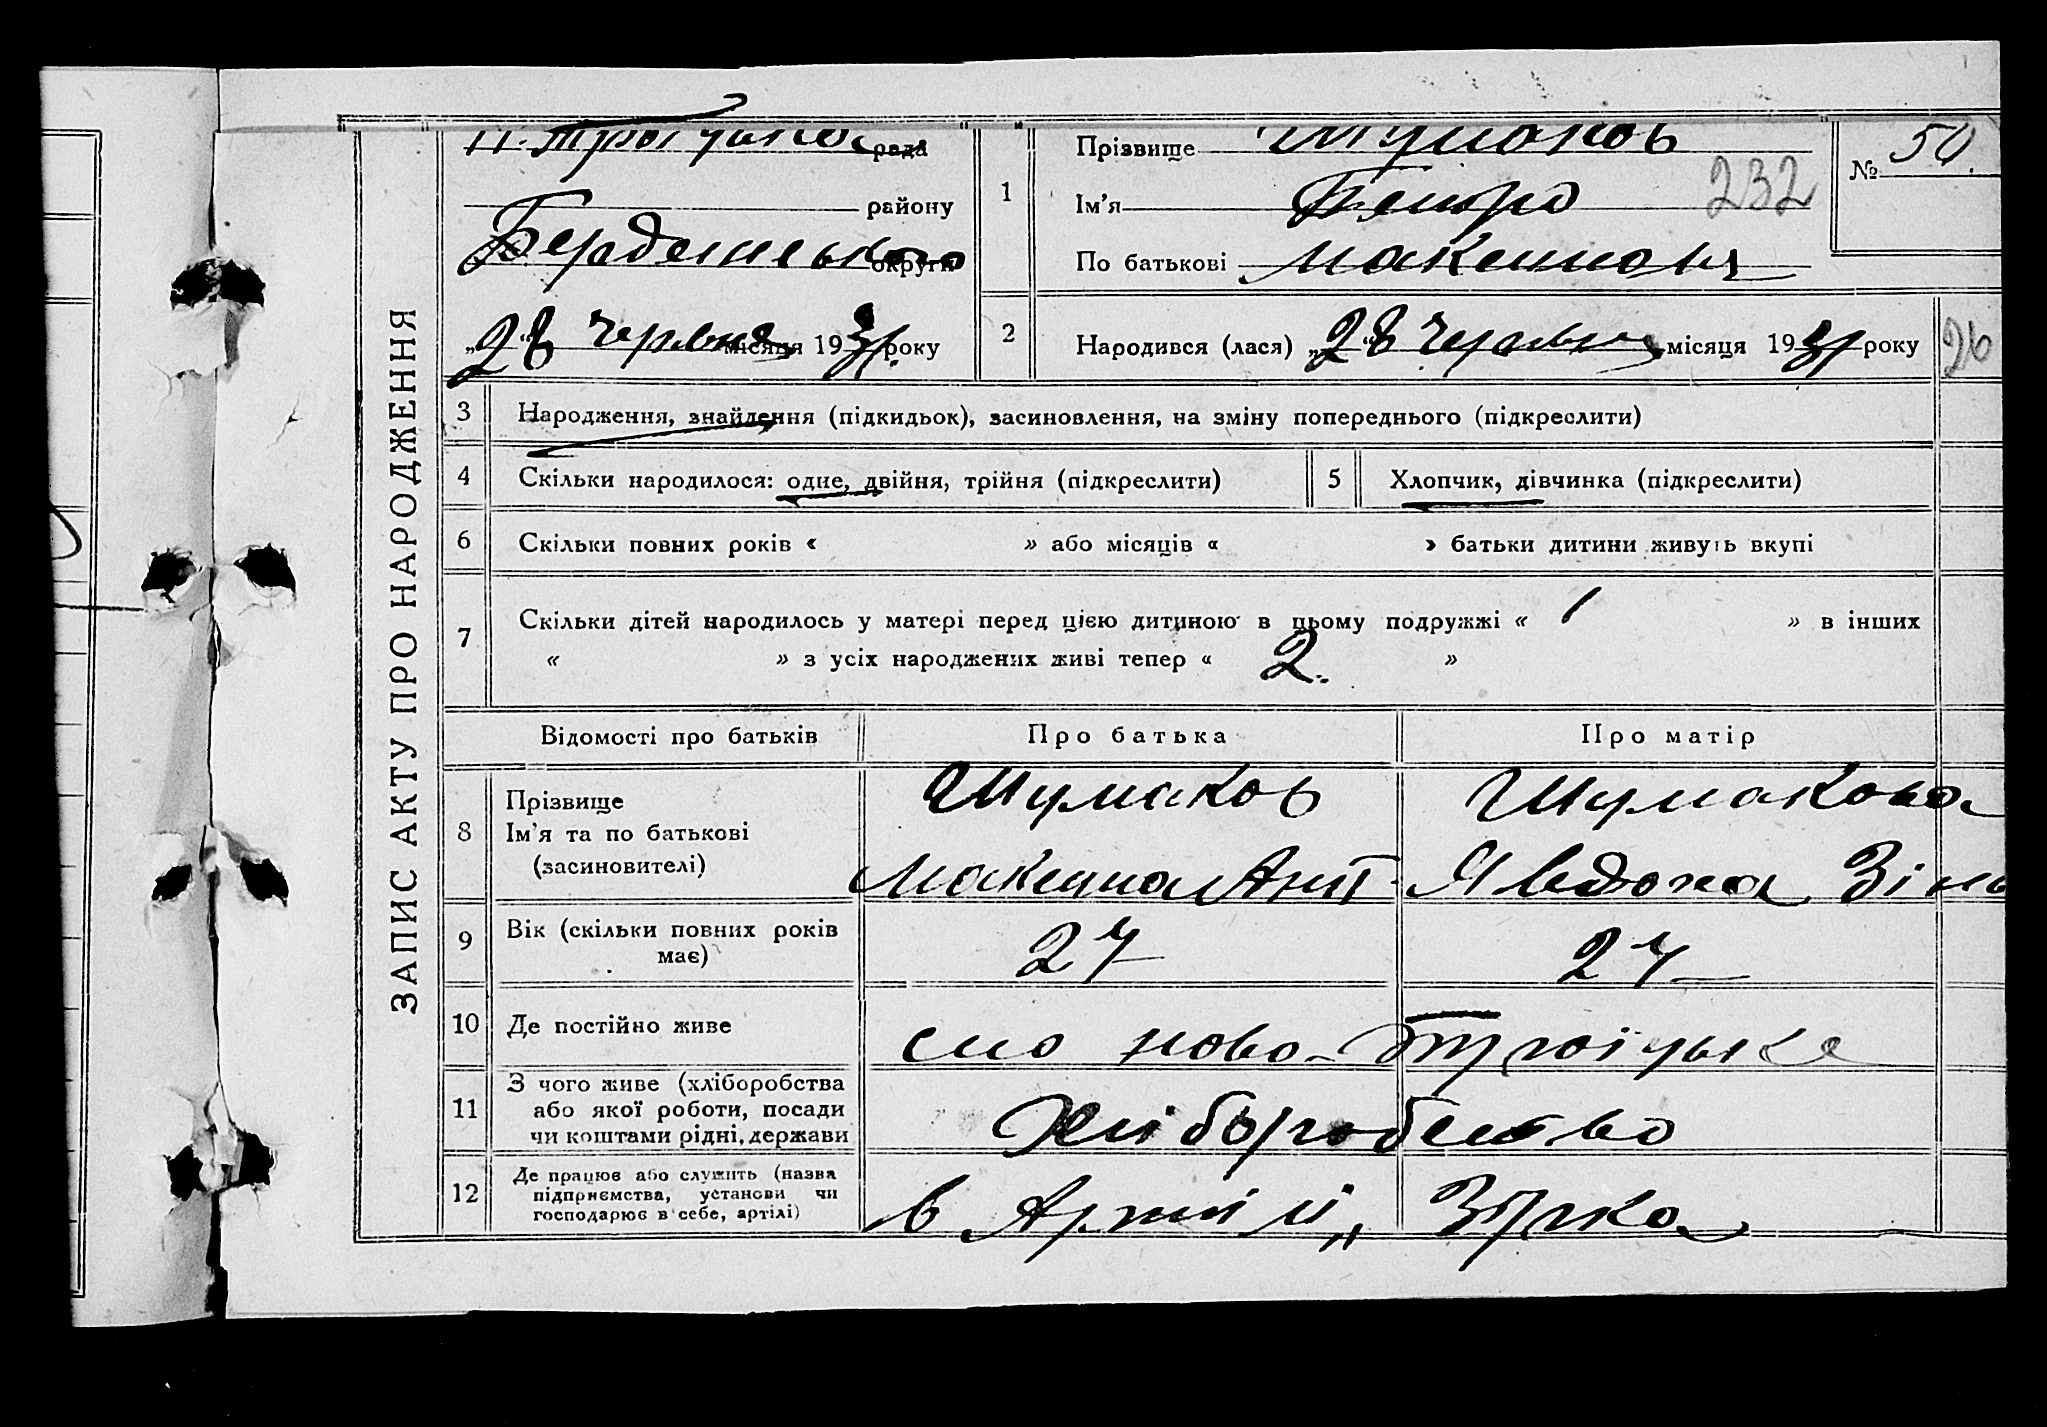 ЗАПИС АКТУ ПРО НАРОДЖЕННЯ
Н. Троїцька рада
району
Бердянського округи
„28“ червня місяця 1931 року
1 Прізвище Шумаков
Ім'я Петро 232
По батькові
№ 50.
2 Народився (лася) „28“ червня місяця 1931 року
26
3 Народження, знайдення (підкидьок), засиновлення, на зміну попереднього (підкреслити)
4 Скільки народилося: одне, двійня, трійня (підкреслити)
5 Хлопчик, дівчинка (підкреслити)
6 Скільки повних років « » або місяців « » батьки дитини живуть вкупі
7 Скільки дітей народилось у матері перед цією дитиною в цьому подружжі « 1 » в інших
« » з усіх народжених живі тепер « 2. »
Відомості про батьків
Про батька
Про матір
8 Прізвище
Ім'я та по батькові
(засиновителі)
Шумаков
Ант
Шумакова
Явдоха Зінь
9 Вік (скільки повних років
має)
27
27
10 Де постійно живе
село Ново-Троїцьке
11 З чого живе (хліборобства
або якої роботи, посади
чи коштами рідні, держави
Хліборобство
12 Де працює або служить (назва
підприємства, установи чи
господарює в себе, артілі)
в Артілі „Зірка